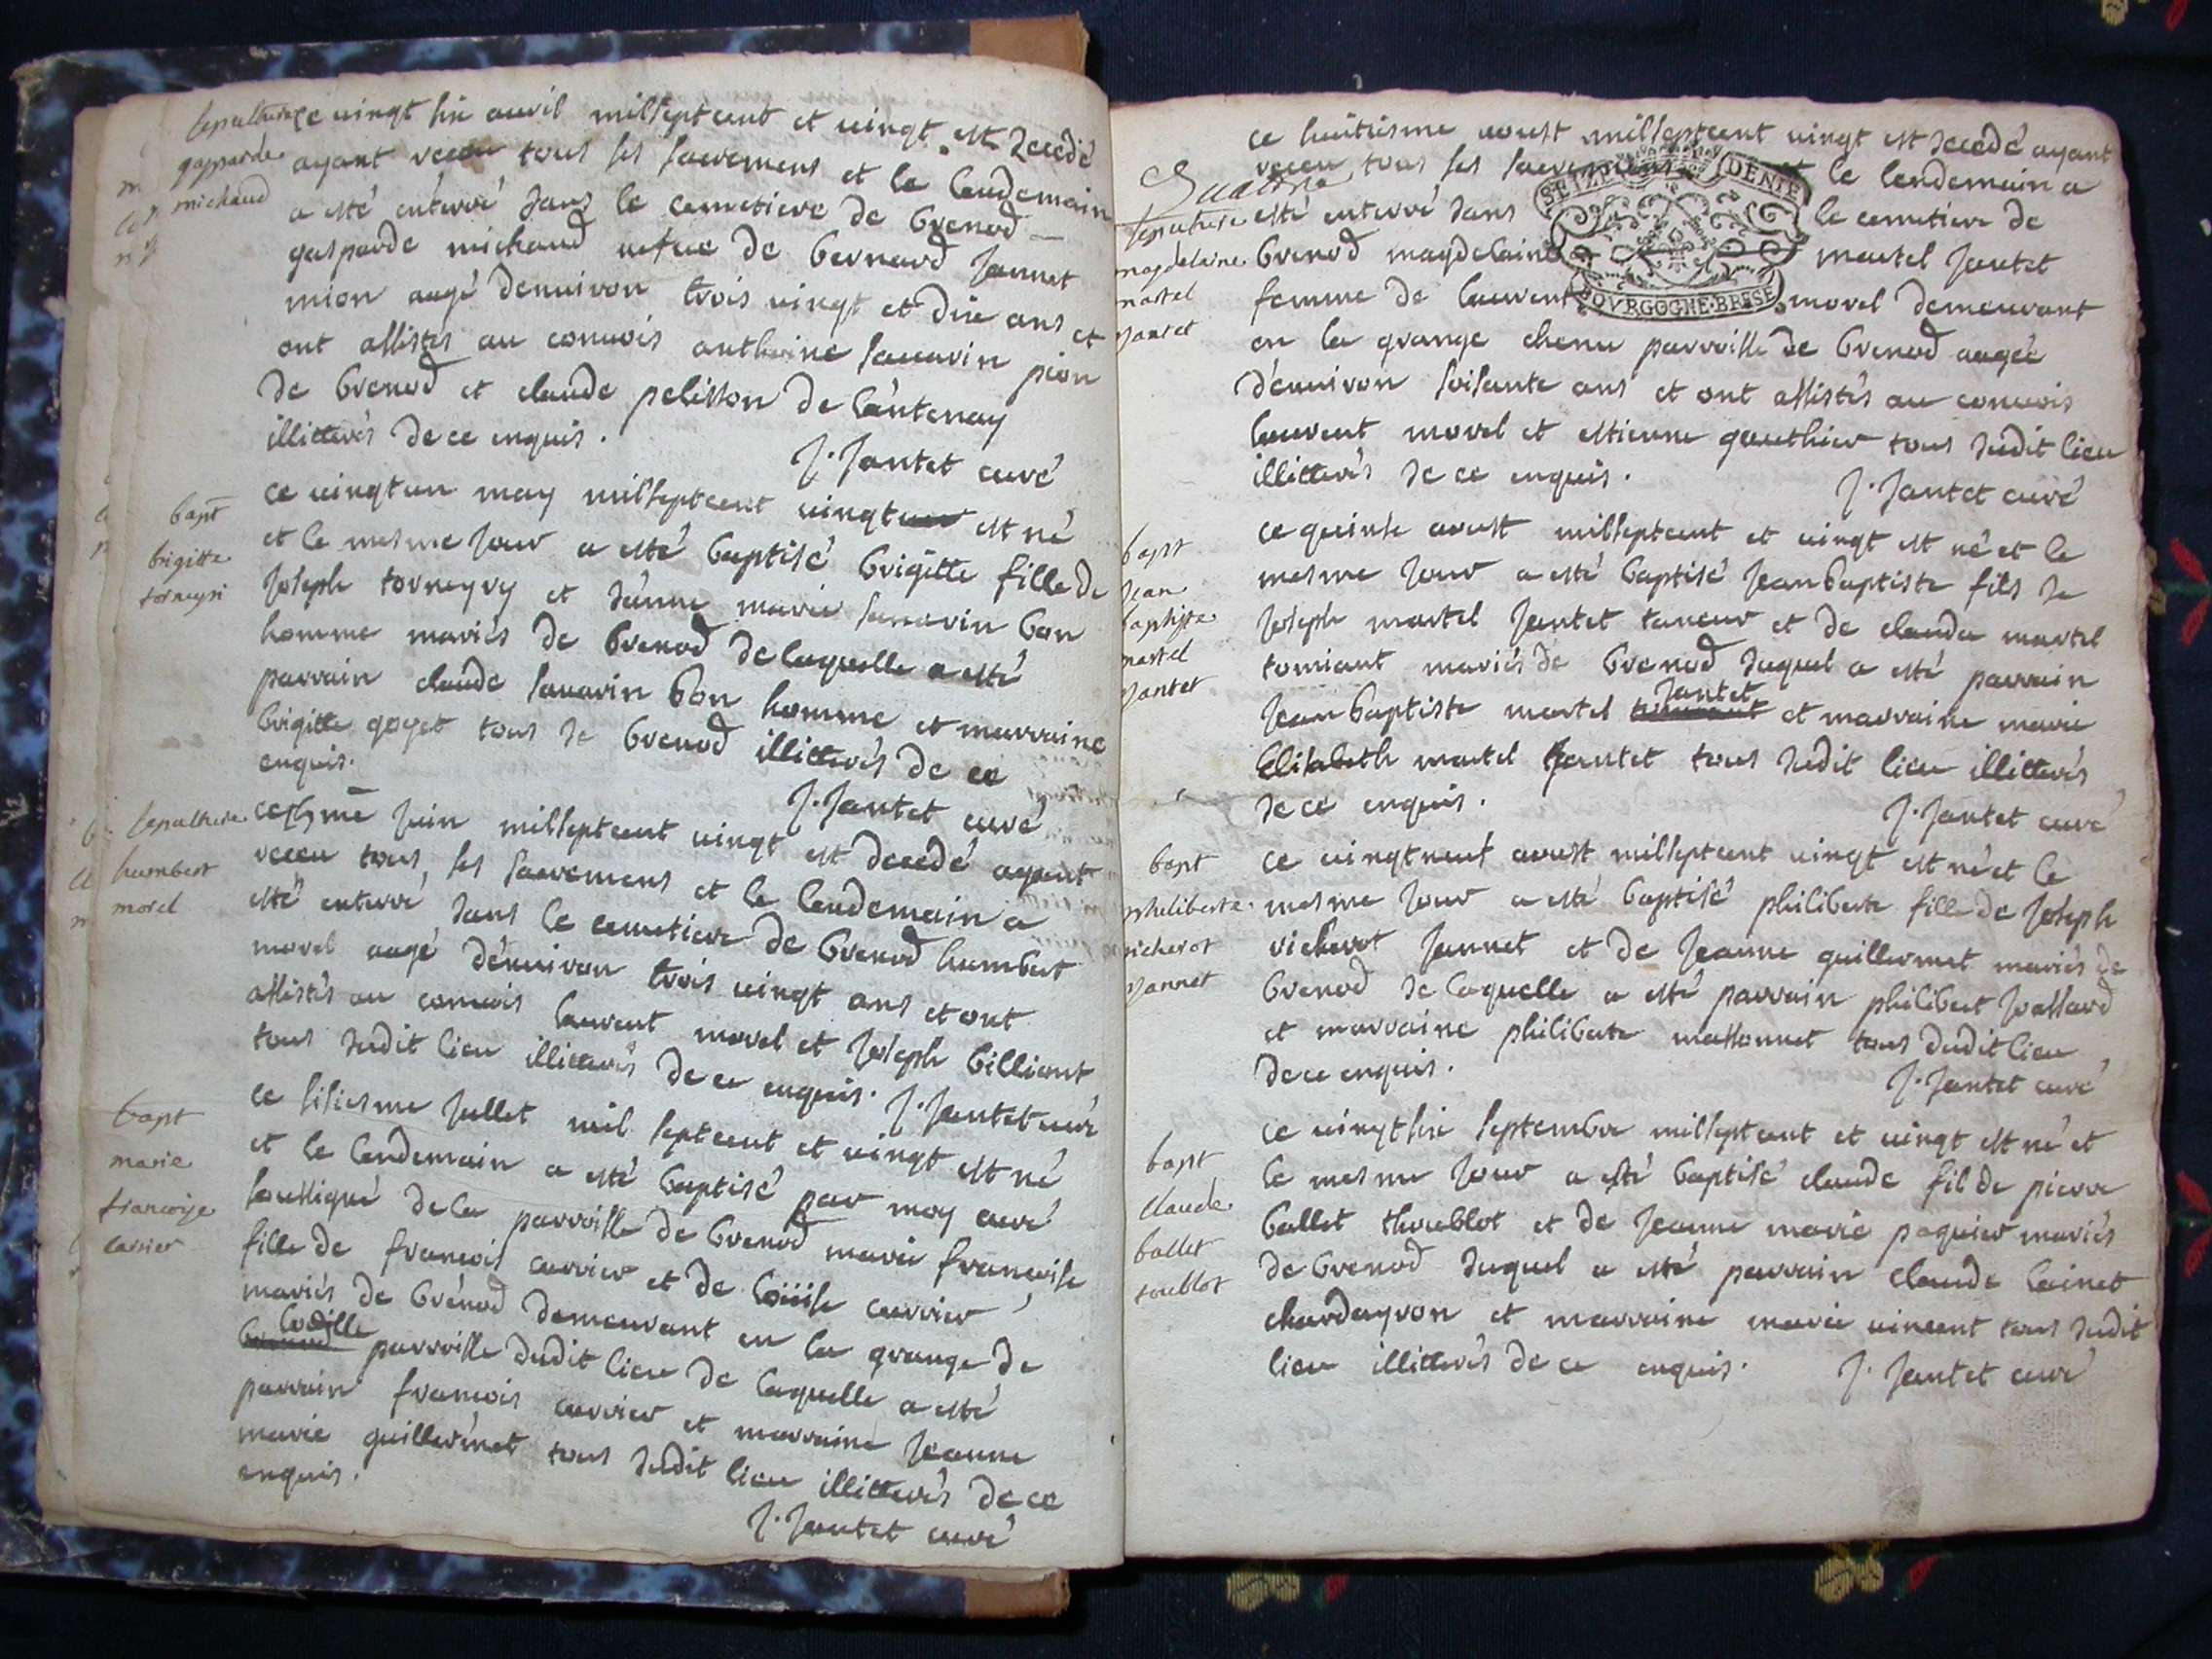 sepulture
gasparde
michaud
ce uingt six auril milseptcent et uingt est decedé
ayant receu tous ses sacremens et le lendemain
a esté enterré dans le cemetiere de brenod
gasparde michaud uefue de bernard jannet
mion aagé denuiron trois uingt et dix ans et
ont assistés au conuois anthoine sauarin pion
de brenod et claude pelisson de lantenay
illitterés de ce enquis.
J. Jantet curé
bapt
brigitte
torneyri
ce uingt un may milseptcent uingt est né
et le mesme jour a esté baptisé brigitte fille de
joseph torneyry et d'anne marie sauarin bon
homme mariés de brenod de laquelle a esté
parrain claude sauarin bon homme et marraine
brigitte goyet tous de brenod illitterés de ce
enquis.
J. Jantet curé
sepulture
humbert
morel
ce juin milseptcent uingt est decedé ayant
receu tous ses sacremens et le lendemain a
esté enterré dans le cemetiere de brenod humbert
morel aagé d'enuiron trois uingt ans et ont
assistés au conuois laurent morel et joseph billiont
tous dudit lieu illitterés de ce enquis. J. Jantet curé
bapt
marie
francoise
carrier
ce sisiesme jullet mil septcent et uingt est né
et le lendemain a esté baptisé par moy curé
soussigné de la parroisse de brenod marie francoise
fille de francois carrier et de loüise carrier
mariés de brénod demeurant en la grange de
lodille
brenod parroisse dudit lieu de laquelle a esté
parrain francois carrier et marraine jeanne
marie guillermet tous dudit lieu illitterés de ce
enquis.
J. Jantet curé
ce huitiesme aoust milseptcent uingt est decedé ayant
receu tous ses sacremens et le lendemain a
sepulture
magdelaine
martel
jantet
esté enterré dans le cemetiere de
brenod magdelaine martel jantet
femme de laurent morel demeurant
en la grange chenu parroisse de brenod aagée
d'enuiron soisante ans et ont assistés au conuois
laurent morel et estienne gauthier tous dudit lieu
illitterés de ce enquis.
J. Jantet curé
SEIZE DENIE
BOVRGOGNE·BRESE
bapt
jean
baptiste
martel
jantet
ce quinse aoust milseptcent et uingt est né et le
mesme jour a esté baptisé jean baptiste fils de
joseph martel jantet taneur et de clauda martel
tomiant mariés de brenod duquel a esté parrain
jantet
jean baptiste martel tomiant et marraine marie
Elisabeth martel jantet tous dudit lieu illitterés
de ce enquis.
J. Jantet curé
bapt
philiberte
richerot
jannet
ce uingt neuf aoust milseptcent uingt est né et le
mesme jour a esté baptisé philiberte fille de joseph
richerot jannet et de jeanne guillermet mariés de
brenod de laquelle a esté parrain philibert joassard
et marraine philiberte massonnet tous dudit lieu
de ce enquis.
J. Jantet curé
bapt
claude
ballet
toublot
ce uingt six septembre milseptcent et uingt est né et
le mesme jour a esté baptisé claude fil de pierre
ballet thoublot et de jeanne marie paquier mariés
de brenod duquel a esté parrain claude lainet
chardeyron et marraine marie uincent tous dudit
lieu illitterés de ce enquis.
J. Jantet curé